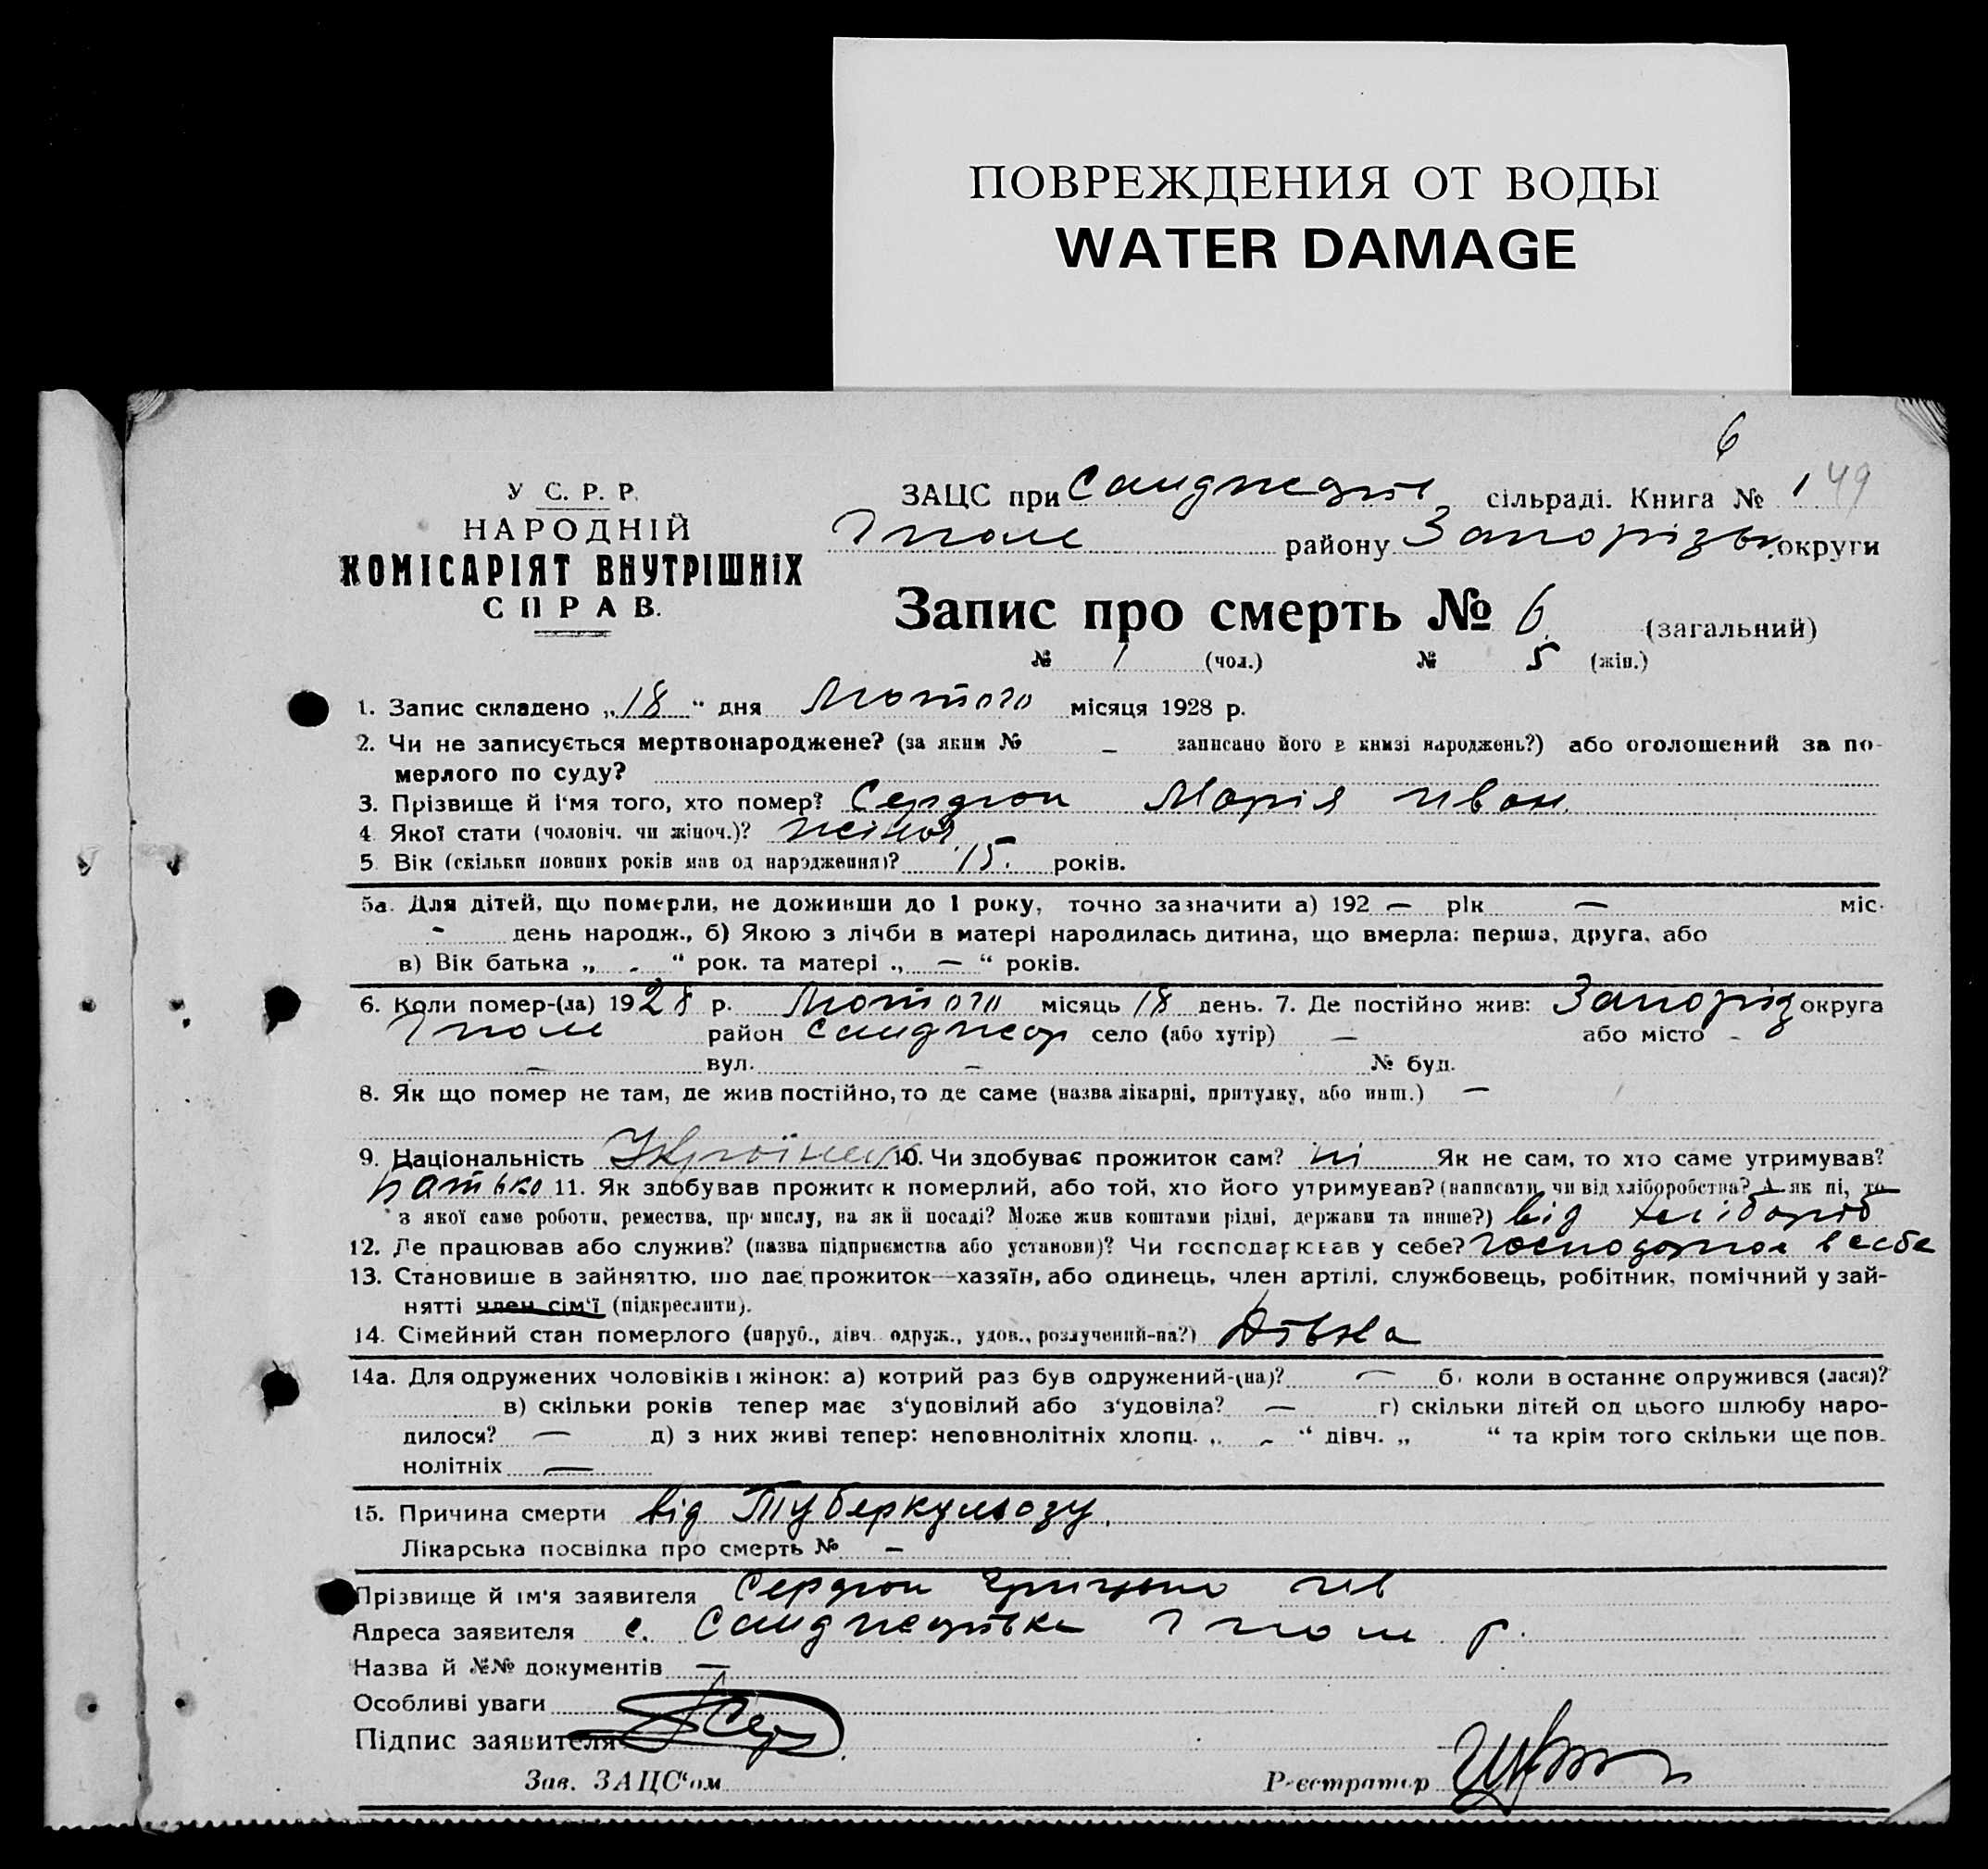 ПОВРЕЖДЕНИЯ ОТ ВОДЫ
WATER DAMAGE
6
У С. Р. Р.
НАРОДНІЙ
КОМІСАРІЯТ ВНУТРІШНІХ
СПРАВ.
ЗАЦС при сільраді. Книга № 1 49
району Запорізьк. округи
Запис про смерть № 6 (загальний)
№ 1 (чол.) № 5 (жін.)
1. Запис складено „18“ дня Лютого місяця 1928 р.
2. Чи не записується мертвонароджене? (за яким № – записано його в книзі народжень?) або оголошений за по-
мерлого по суду?
3. Прізвище й ім'я того, хто помер? Сердюк Марія Иван.
4. Якої стати (чоловіч. чи жіноч.)? жіноч.
5. Вік (скільки повних років мав од народження)? 15. років.
5а. Для дітей, що померли, не доживши до 1 року, точно зазначити а) 192 — рік — міс.
- день народж., б) Якою з лічби в матері народилась дитина, що вмерла: перша, друга, або
в) Вік батька „ - “ рок. та матері „ — “ років.
6. Коли помер-(ла) 1928 р. Лютого місяць 18 день. 7. Де постійно жив: Запоріз округа
район село (або хутір) — або місто -
— вул. — № буд.
8. Як що помер не там, де жив постійно, то де саме (назва лікарні, притулку, або инш.) —
9. Національність 10. Чи здобуває прожиток сам? ні Як не сам, то хто саме утримував?
батько 11. Як здобував прожиток померлий, або той, хто його утримував? (написати, чи від хліборобства? А як ні, то
з якої саме роботи, ремества, промислу, на якій посаді? Може жив коштами рідні, держави та инше?) від хлібороб
12. Де працював або служив? (назва підприємства або установи)? Чи господарював у себе? в себе
13. Становище в зайняттю, що дає прожиток—хазяїн, або одинець, член артілі, службовець, робітник, помічний у зай-
нятті член сім'ї (підкреслити).
14. Сімейний стан померлого (паруб., дівч. одруж., удов., розлучений-на?) Дівка
14а. Для одружених чоловіків і жінок: а) котрий раз був одружений-(на)? — б) коли востаннє одружився (лася)?
в) скільки років тепер має з'удовілий або з'удовіла? — г) скільки дітей од цього шлюбу наро-
дилося? — д) з них живі тепер: неповнолітніх хлопц. „ - “ дівч. „ “ та крім того скільки ще пов-
нолітніх —
15. Причина смерти від Туберкульозу.
Лікарська посвідка про смерть № –
Прізвище й ім'я заявителя Сердюк Грицько Ив
Адреса заявителя с. р.
Назва й №№ документів —
Особливі уваги
Підпис заявителя
Зав. ЗАЦС'ом
Реєстратор